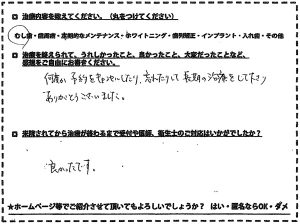 ■ 治療内容を教えてください。（丸をつけてください）
むし歯・歯周病・定期的なメンテナンス・ホワイトニング・歯列矯正・インプラント・入れ歯・その他
■ 治療を終えられて、うれしかったこと、良かったこと、大変だったことなど、
感想をご自由にお書きください。
何度か予約を
忘れたりして長期の治療をして下さり
ありがとうございました。
■ 来院されてから治療が終わるまで受付や医師、衛生士のご対応はいかがでしたか？
良かったです。
★ホームページ等でご紹介させて頂いてもよろしいでしょうか？ はい・匿名ならOK・ダメ